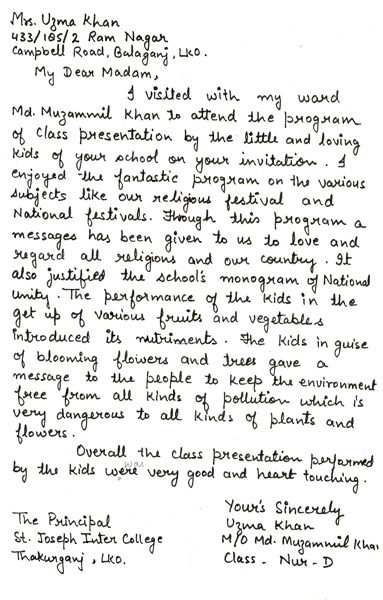 Mrs. Uzma Khan
433/185/2 Ram Nagar
Campbell Road, Balaganj, LKO.
My Dear Madam,
I visited with my ward
Md. Muzammil Khan to attend the program
of class presentation by the little and loving
kids of your school on your invitation. I
enjoyed the fantastic program on the various
subjects like our religious festival and
National festivals. Though this program a
messages has been given to us to love and
regard all religions and our country. It
also justified the school's monogram of National
Unity. The performance of the kids in the
get up of various fruits and vegetables
introduced its nutriments. The kids in guise
of blooming flowers and trees gave a
message to the people to keep the environment
free from all kinds of pollution which is
very dangerous to all kinds of plants and
flowers.
Overall the class presentation performed
by the kids were was very good and heart touching.
Your's Sincerely
Uzma Khan
M/O Md. Muzammil Khan
Class - Nur - D
The Principal
St. Joseph Inter College
Thakurganj, LKO.